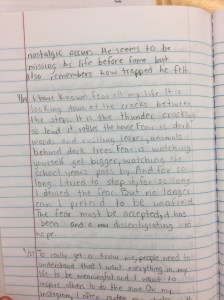 nostalgic occurs. He seems to be
missing his life before fame but
also remembers how trapped he felt.
I have known fear all my life. It is
looking down at the cracks between
the steps. It is the thunder cracking
so loud it rattles the house. Fear is dark
woods and swirling leaves, animals
behind dark trees. Fear is watching
yourself get bigger, watching the
school years pass by. And for so
long I tried to stop it, for so long
I denied the fear. But no longer
can I pretend to be unafraid.
The fear must be accepted, it has
been and is disentigrating to
hope.
To really get to know me, people need to
understand that I want everything in my
life to be meaningful and I want to
inspire others to do the same. On my
instagram, I often